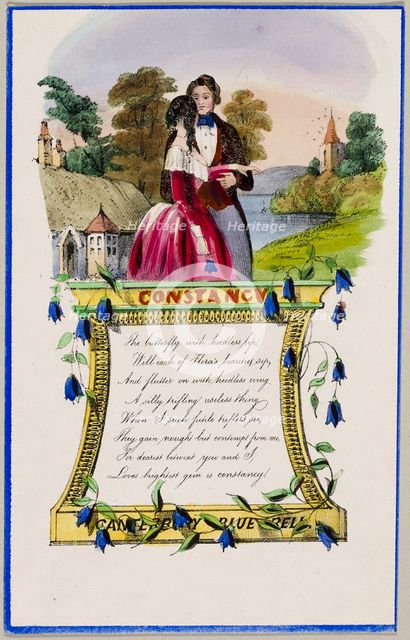 CONSTANCY
The butterfly with heedless lip,
Will each of Flora's beauties sip,
And flutter on with heedless wing
A silly trifling useless thing,
When I such futile triflers see,
They gain nought but contempt from me,
For dearest betwixt you and I
Loves brightest gem is constancy.
CANTERBURY BLUE BELL
Heritage
Heritage
Heritage
Heritage